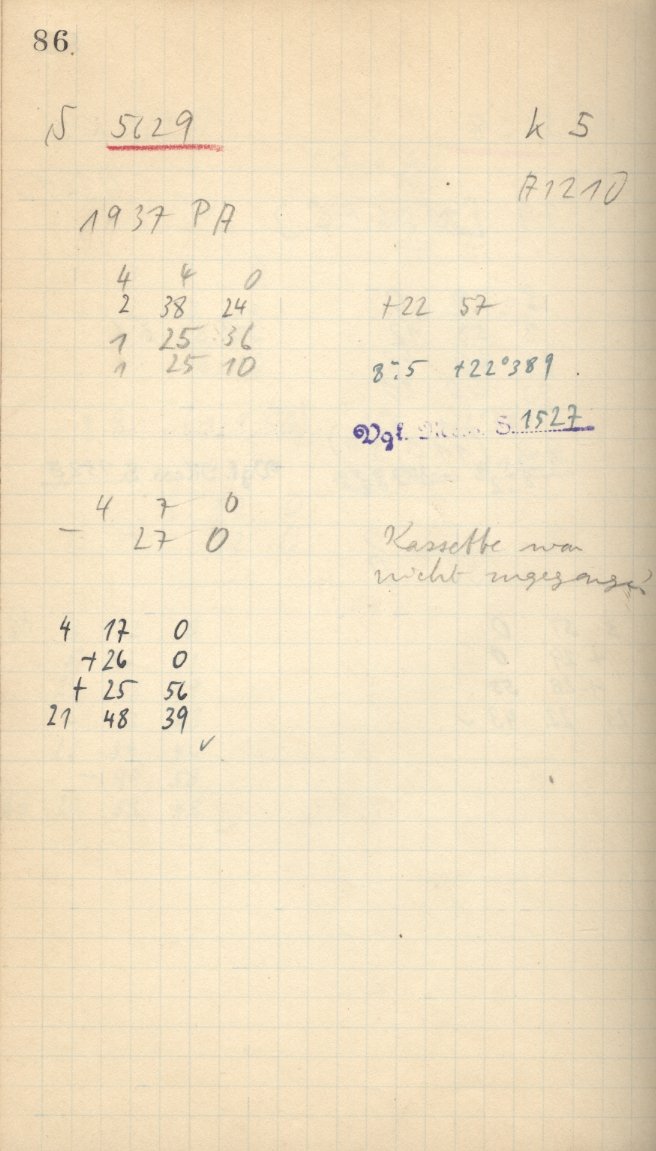 86
5629
k 5
A1210
1937 PA
4 4 0
2 38 24 +22 57
1 25 36
1 25 10 8m.5 +22°389
Vgl. S. 1527
4 7 0
– 27 0
Kassette war
nicht zugegangen
4 17 0
+26 0
+ 25 56
21 48 39
✓